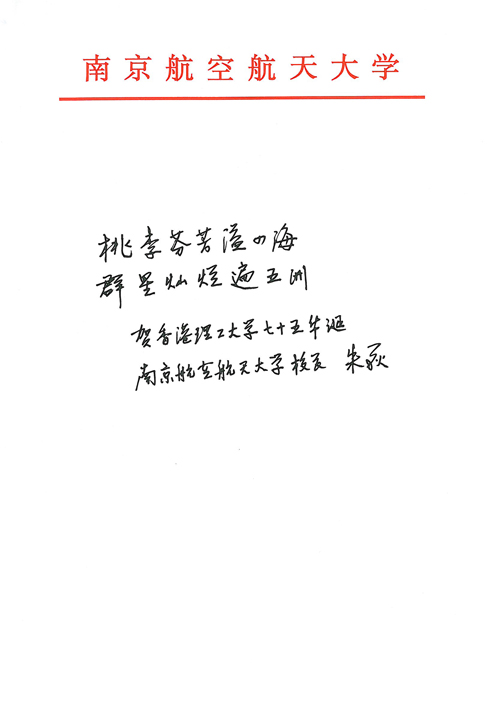 南京航空航天大学
桃李芬芳溢四海
群星灿烂遍五洲
贺香港理工大学七十五华诞
南京航空航天大学校友 朱荻